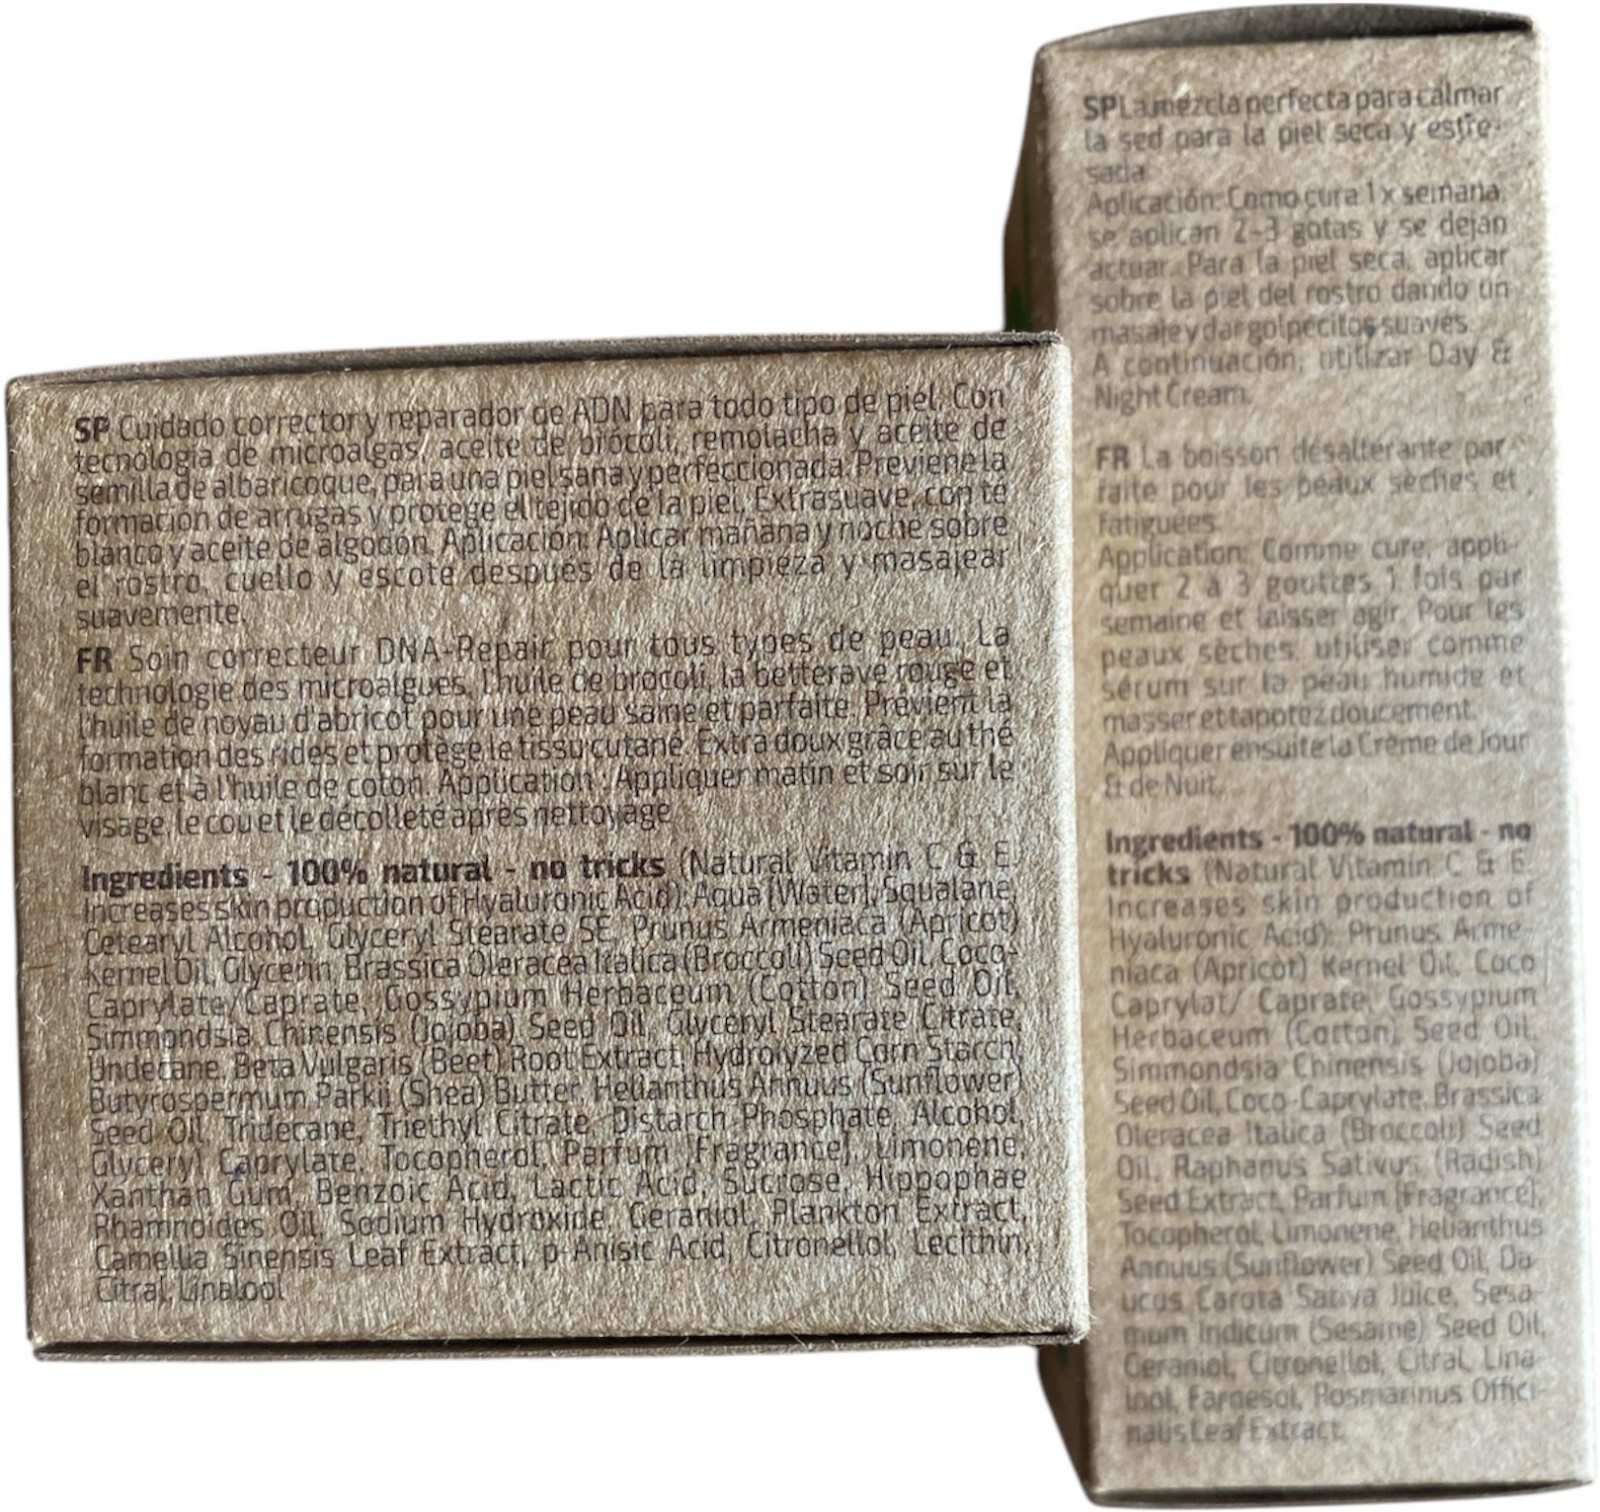 SP Cuidado corrector y reparador de ADN para todo tipo de piel. Con
tecnología de microalgas, aceite de brócoli, remolacha y aceite de
semilla de albaricoque, para una piel sana y perfeccionada. Previene la
formación de arrugas y protege el tejido de la piel. Extrasuave, con té
blanco y aceite de algodón. Aplicación: Aplicar mañana y noche sobre
el rostro, cuello y escote después de la limpieza y masajear
suavemente.
FR Soin correcteur DNA-Repair pour tous types de peau. La
technologie des microalgues, l'huile de brocoli, la betterave rouge et
l'huile de noyau d'abricot pour une peau saine et parfaite. Prévient la
formation des rides et protège le tissu cutané. Extra doux grâce au thé
blanc et à l'huile de coton. Application : Appliquer matin et soir sur le
visage, le cou et le décolleté après nettoyage
Ingredients - 100% natural - no tricks (Natural Vitamin C & E
Increases skin production of Hyaluronic Acid): Aqua [Water], Squalane,
Cetearyl Alcohol, Glyceryl Stearate SE, Prunus Armeniaca (Apricot)
Kernel Oil, Glycerin, Brassica Oleracea Italica (Broccoli) Seed Oil, Coco-
Caprylate/Caprate, Gossypium Herbaceum (Cotton) Seed Oil,
Simmondsia Chinensis (Jojoba) Seed Oil, Glyceryl Stearate Citrate,
Undecane, Beta Vulgaris (Beet) Root Extract, Hydrolyzed Corn Starch,
Butyrospermum Parkii (Shea) Butter, Helianthus Annuus (Sunflower)
Seed Oil, Tridecane, Triethyl Citrate, Distarch Phosphate, Alcohol,
Glyceryl Caprylate, Tocopherol, Parfum [Fragrance], Limonene,
Xanthan Gum, Benzoic Acid, Lactic Acid, Sucrose, Hippophae
Rhamnoides Oil, Sodium Hydroxide, Geraniol, Plankton Extract,
Camellia Sinensis Leaf Extract, p-Anisic Acid, Citronellol, Lecithin,
Citral, Linalool
SP La mezcla perfecta para calmar
la sed para la piel seca y estre-
sada.
Aplicación: Como cura 1 x semana,
se aplican 2-3 gotas y se dejan
actuar. Para la piel seca, aplicar
sobre la piel del rostro dando un
masaje y dar golpecitos suaves.
A continuación, utilizar Day &
Night Cream.
FR La boisson désaltérante par-
faite pour les peaux sèches et
fatiguées.
Application: Comme cure, appli-
quer 2 à 3 gouttes 1 fois par
semaine et laisser agir. Pour les
peaux sèches, utiliser comme
sérum sur la peau humide et
masser et tapotez doucement.
Appliquer ensuite la Crème de Jour
& de Nuit.
Ingredients - 100% natural - no
tricks (Natural Vitamin C & E
Increases skin production of
Hyaluronic Acid): Prunus Arme-
niaca (Apricot) Kernel Oil, Coco
Caprylat/ Caprate, Gossypium
Herbaceum (Cotton) Seed Oil,
Simmondsia Chinensis (Jojoba)
Seed Oil, Coco-Caprylate, Brassica
Oleracea Italica (Broccoli) Seed
Oil, Raphanus Sativus (Radish)
Seed Extract, Parfum [Fragrance],
Tocopherol, Limonene, Helianthus
Annuus (Sunflower) Seed Oil, Da-
ucus Carota Sativa Juice, Sesa-
mum Indicum (Sesame) Seed Oil,
Geraniol, Citronellol, Citral, Lina-
lool, Farnesol, Rosmarinus Offici-
nalis Leaf Extract.